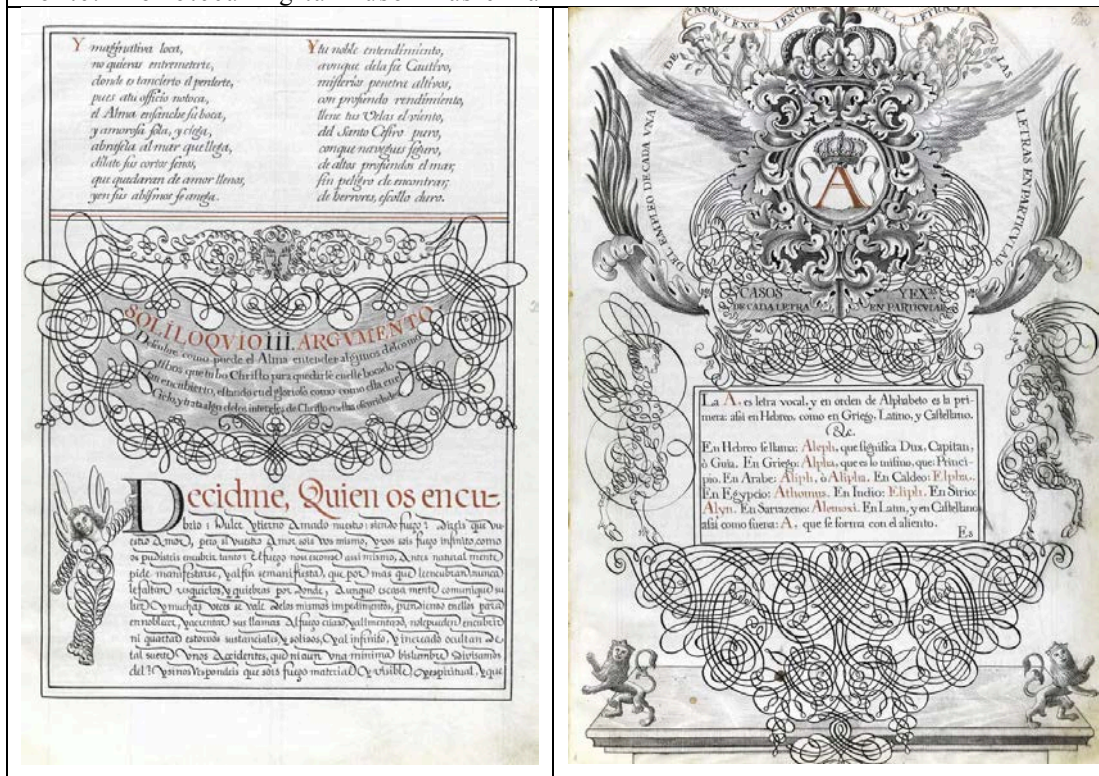 Ymaginativa loca,
no quieras entremeterte,
donde es tan cierto el perderte,
pues atu officio notoca,
el Alma ensanche su boca,
y amorosa sola, y ciega,
abrasela al mar que llega,
dilate sus cortos senos,
que quedaran de amor llenos,
yen sus abismos se anega.
Y tu noble entendimiento,
aunque dela fee Cautivo,
misterios penetra altivos,
con profundo rendimiento,
llene tus Velas el viento,
del Santo Cefiro puro,
conque navegues seguro,
de altos profundos el mar,
sin peligro de encontrar,
de herrores, escollo duro.
SOLILOQVIO III. ARGVMENTO
Descubre como puede el Alma entender algunos delos mo
tibos que tubo Christo para quedarse en este bocado
tan encubierto, estando en el glorioso como como esta enel
Cielo, y trata algo delos intereses de Christo en estas obscuridades
Decidme, Quien os encu-
brio? Dulce ytierno Amado nuestro: siendo fuego? Direis que vu-
estro Amor, pero si vuestro Amor sois Vos mismo, y vos sois fuego infinito, como
os pudisteis encubrir tanto? El fuego nose esconde assi mismo, Antes natural mente
pide manifestarse, yalfin semanifiesta, que por mas que leencubran, nunca
lefaltan resquicios, y quiebras por donde, Aunque escasa mente comunique su
luz, Y muchas veces se vale delos mismos impedimentos, prendiendo enellos para
ennoblecer, yacrentar sus llamas. Al fuego craso, yalimentado, nolepueden encubrir
ni quartar estorvos sustanciales, y solidos, Yal infinito, y increado ocultan de
tal suerte Vnos Accidentes, que ni aun Vna minima vislumbre Divisamos
del? Ysinos Respondeis que sois fuego material Y visible, Oyespiritual, Yque
CASOS, Y EXCELENCIAS DE LA LETRA A.
DE LAS
DEL EMPLEO DE CADA VNA
LETRAS EN PARTICVLAR
A
CASOS Y EX.as
DE CADA LETRA EN PARTICVLAR
La A. es letra vocal, y en orden de Alphabeto es la pri-
mera: asiâ en Hebreo, como en Griego, Latino, y Castellano.
&c.
En Hebreo se llama: Aleph, que significa Dux, Capitan,
ò Guia. En Griego: Alpha, que es lo mismo, que: Princi-
pio. En Arabe: Aliph, ò Alipha. En Caldeo: Elpha.
En Egypcio: Athomus. En Indio: Eliph. En Sirio:
Alyn. En Sarrazeno: Alemoxi. En Latin, y en Castellano
asiâ como suena: A, que se forma con el aliento.
Es